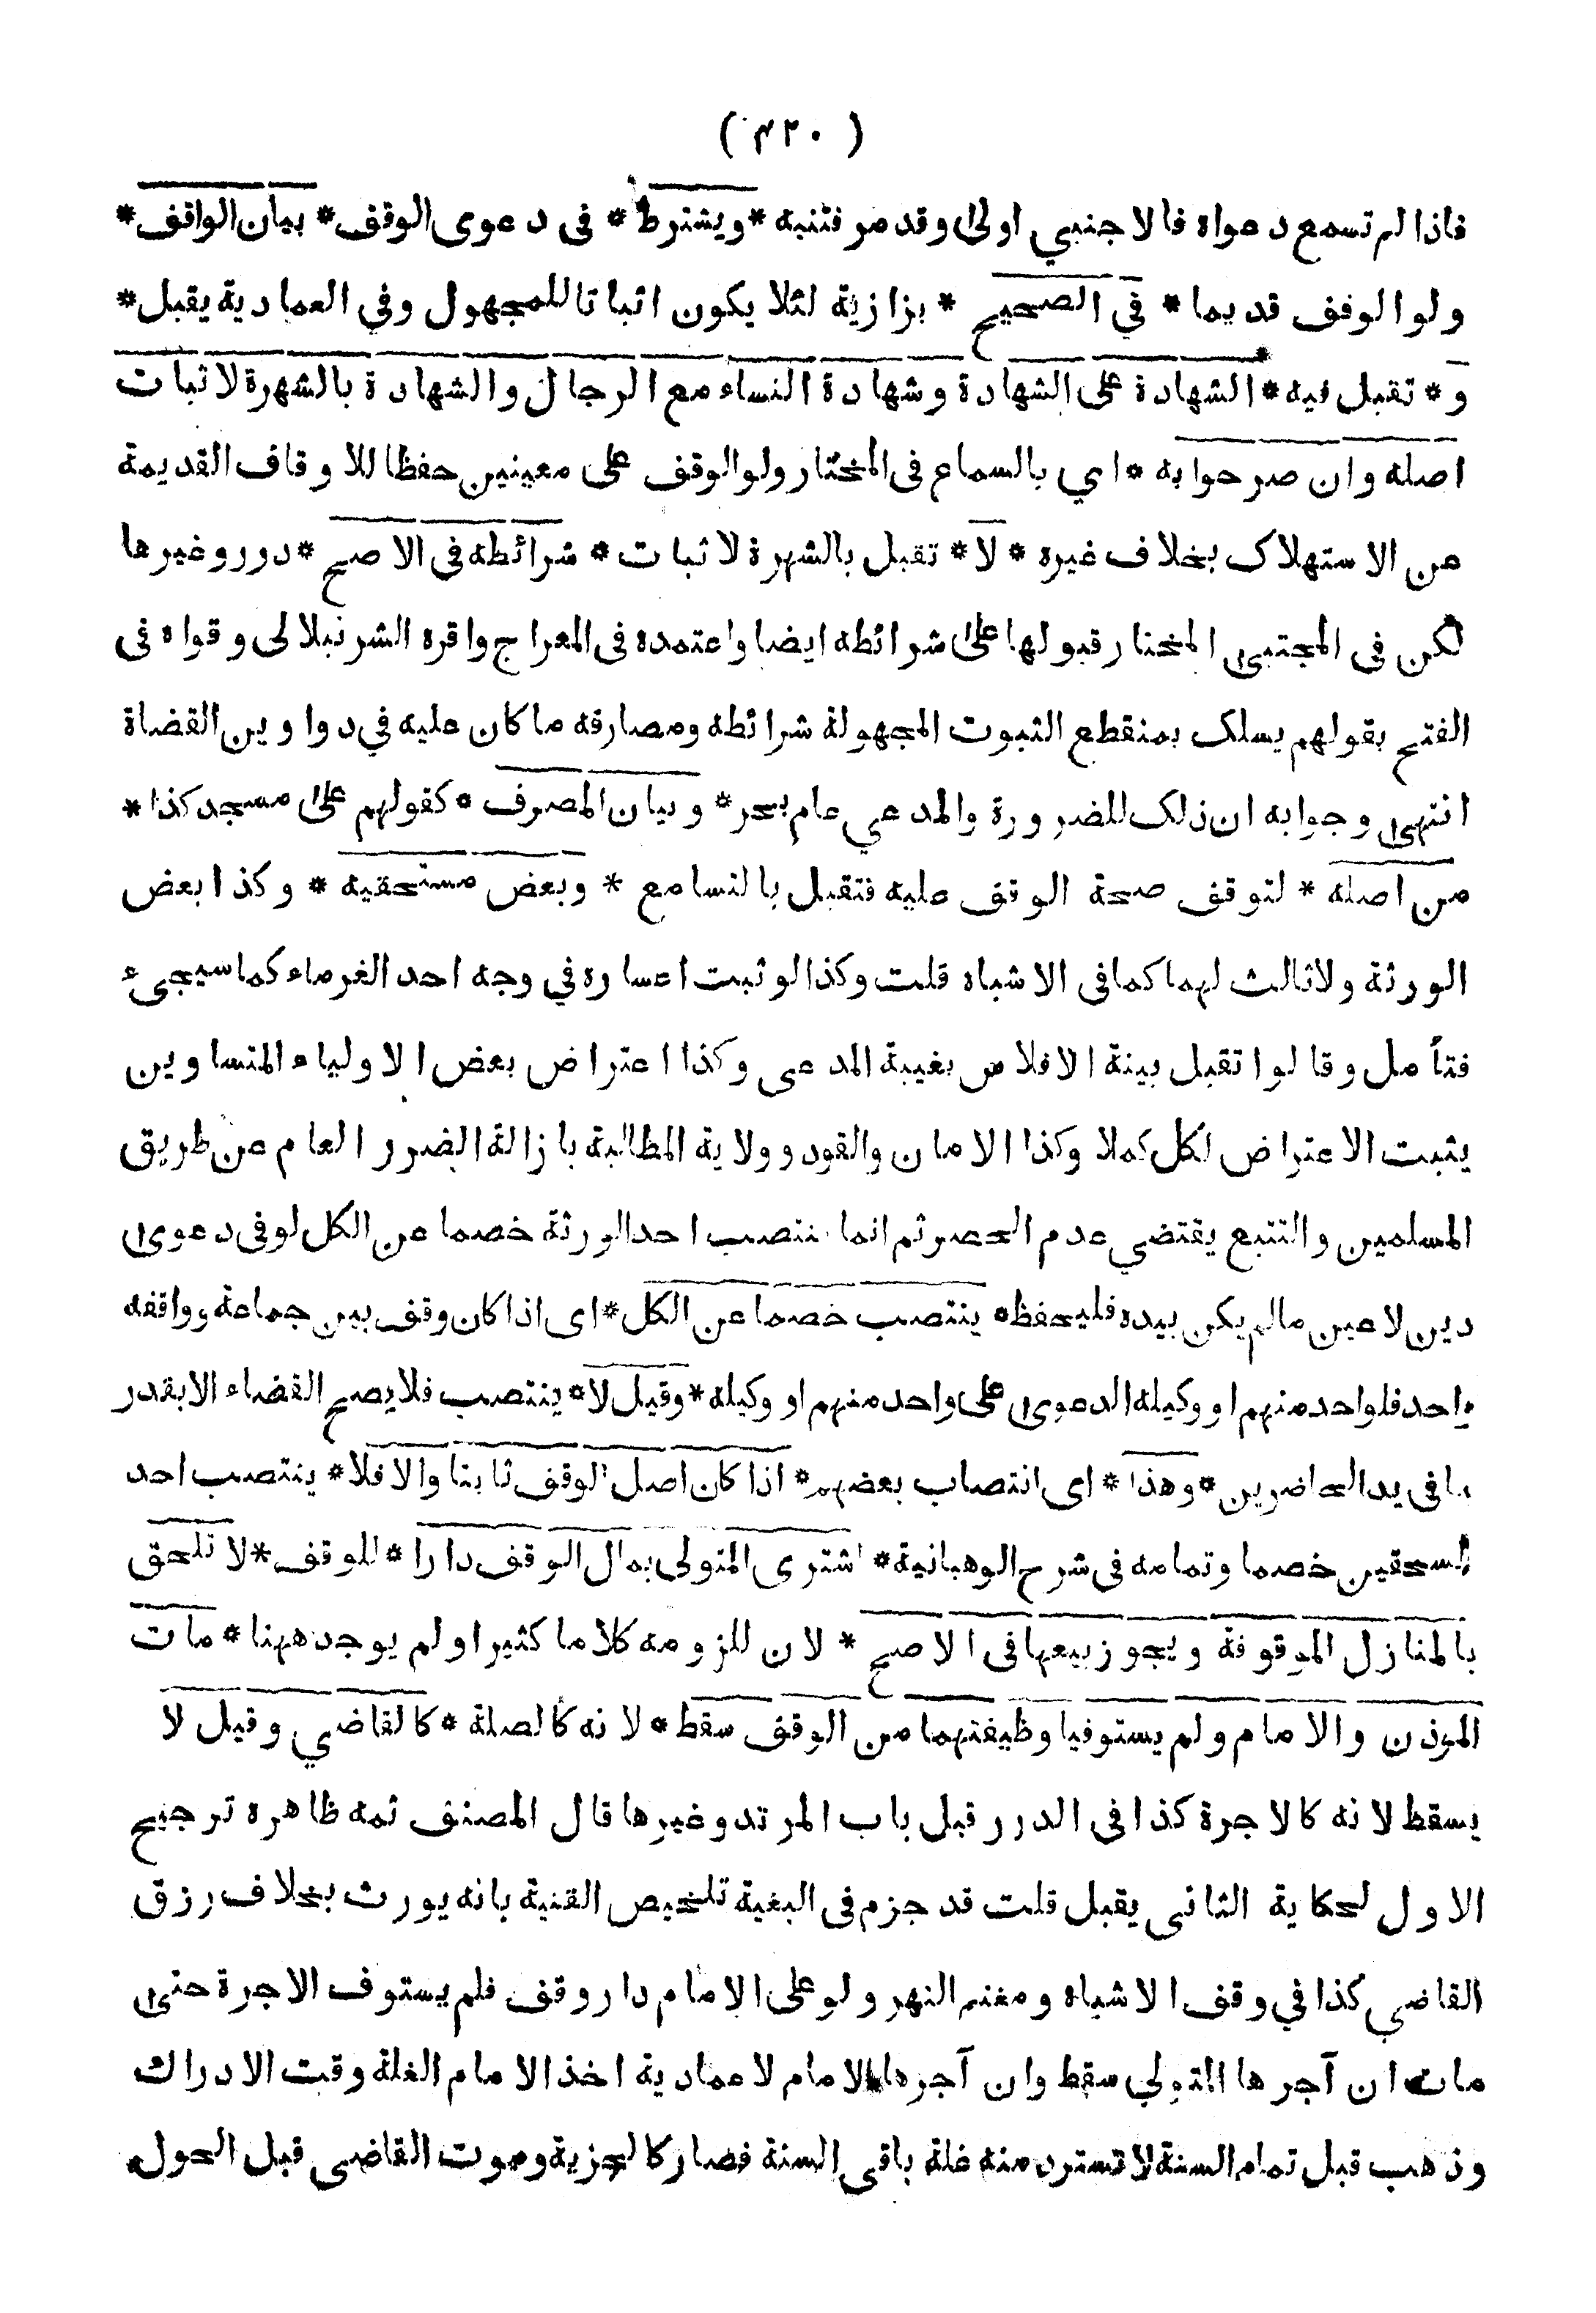 ( ۴۲۰ )
فاذا لم تسمع دعواه فالاجنبي اولىٰ وقد مر فتنبه * ويشترط * فى دعوى الوقف * بيان الواقف *
ولو الوقف قديما * في الصحيح * بزازية لئلا يكون اثباتا للمجهول وفي العمادية يقبل *
و * تقبل فيه * الشهادة على الشهادة وشهادة النساء مع الرجال والشهادة بالشهرة لاثبات
اصله وان صرحوا به * اي بالسماع فى المختار ولو الوقف على معينين حفظا للاوقاف القديمة
عن الاستهلاك بخلاف غيره * لا * تقبل بالشهرة لاثبات * شرائطه فى الاصح * درر وغيرها
لكن في المجتبىٰ المختار قبولها علىٰ شرائطه ايضا واعتمده فى المعراج واقره الشرنبلالى وقواه فى
الفتح بقولهم يسلك بمنقطع الثبوت المجهولة شرائطه ومصارفه ما كان عليه في دواوين القضاة
انتهىٰ وجوابه ان ذلك للضرورة والمدعي عام بحر * وبيان المصرف * كقولهم علىٰ مسجد كذا *
من اصله * لتوقف صحة الوقف عليه فتقبل بالتسامع * وبعض مستحقيه * وكذا بعض
الورثة ولا ثالث لهما كما فى الاشباه قلت وكذا لو ثبت اعساره في وجه احد الغرماء كما سيجىء
فتأمل وقالوا تقبل بينة الافلاس بغيبة المدعى وكذا اعتراض بعض الاولياء المتساوين
يثبت الاعتراض لكل كملا وكذا الامان والقود وولاية المطالبة بازالة الضرر العام عن طريق
المسلمين والتتبع يقتضي عدم الحصر ثم انما ينتصب احد الورثة خصما عن الكل لو فى دعوىٰ
دين لا عين مالم يكن بيده فليحفظ * ينتصب خصما عن الكل * اى اذا كان وقف بين جماعة وواقفه
واحد فلو احد منهم او وكيله الدعوىٰ علىٰ واحد منهم او وكيله * وقيل لا * ينتصب فلا يصح القضاء الا بقدر
ما فى يد الحاضرين * وهذا * اى انتصاب بعضهم * اذا كان اصل الوقف ثابتا والا فلا * ينتصب احد
المسحقين خصما وتمامه فى شرح الوهبانية * اشترى المتولى بمال الوقف دارا * للوقف * لا تلحق
بالمنازل الموقوفة ويجوز بيعها فى الاصح * لان للزومه كلاما كثيرا ولم يوجد ههنا * مات
المؤذن والامام ولم يستوفيا وظيفتهما من الوقف سقط * لانه كالصلة * كالقاضي وقيل لا
يسقط لانه كالاجرة كذا فى الدرر قبل باب المرتد وغيرها قال المصنف ثمه ظاهره ترجيح
الاول لحكاية الثانى يقبل قلت قد جزم فى البغية تلخيص القنية بانه يورث بخلاف رزق
القاضي كذا في وقف الاشباه ومغنم النهر ولو على الامام دار وقف فلم يستوف الاجرة حتىٰ
مات ان آجرها المتولي سقط وان آجرها الامام لا عمادية اخذ الامام الغلة وقت الادراك
وذهب قبل تمام السنة لا تسترد منه غلة باقى السنة فصار كالجزية وموت القاضى قبل الحول